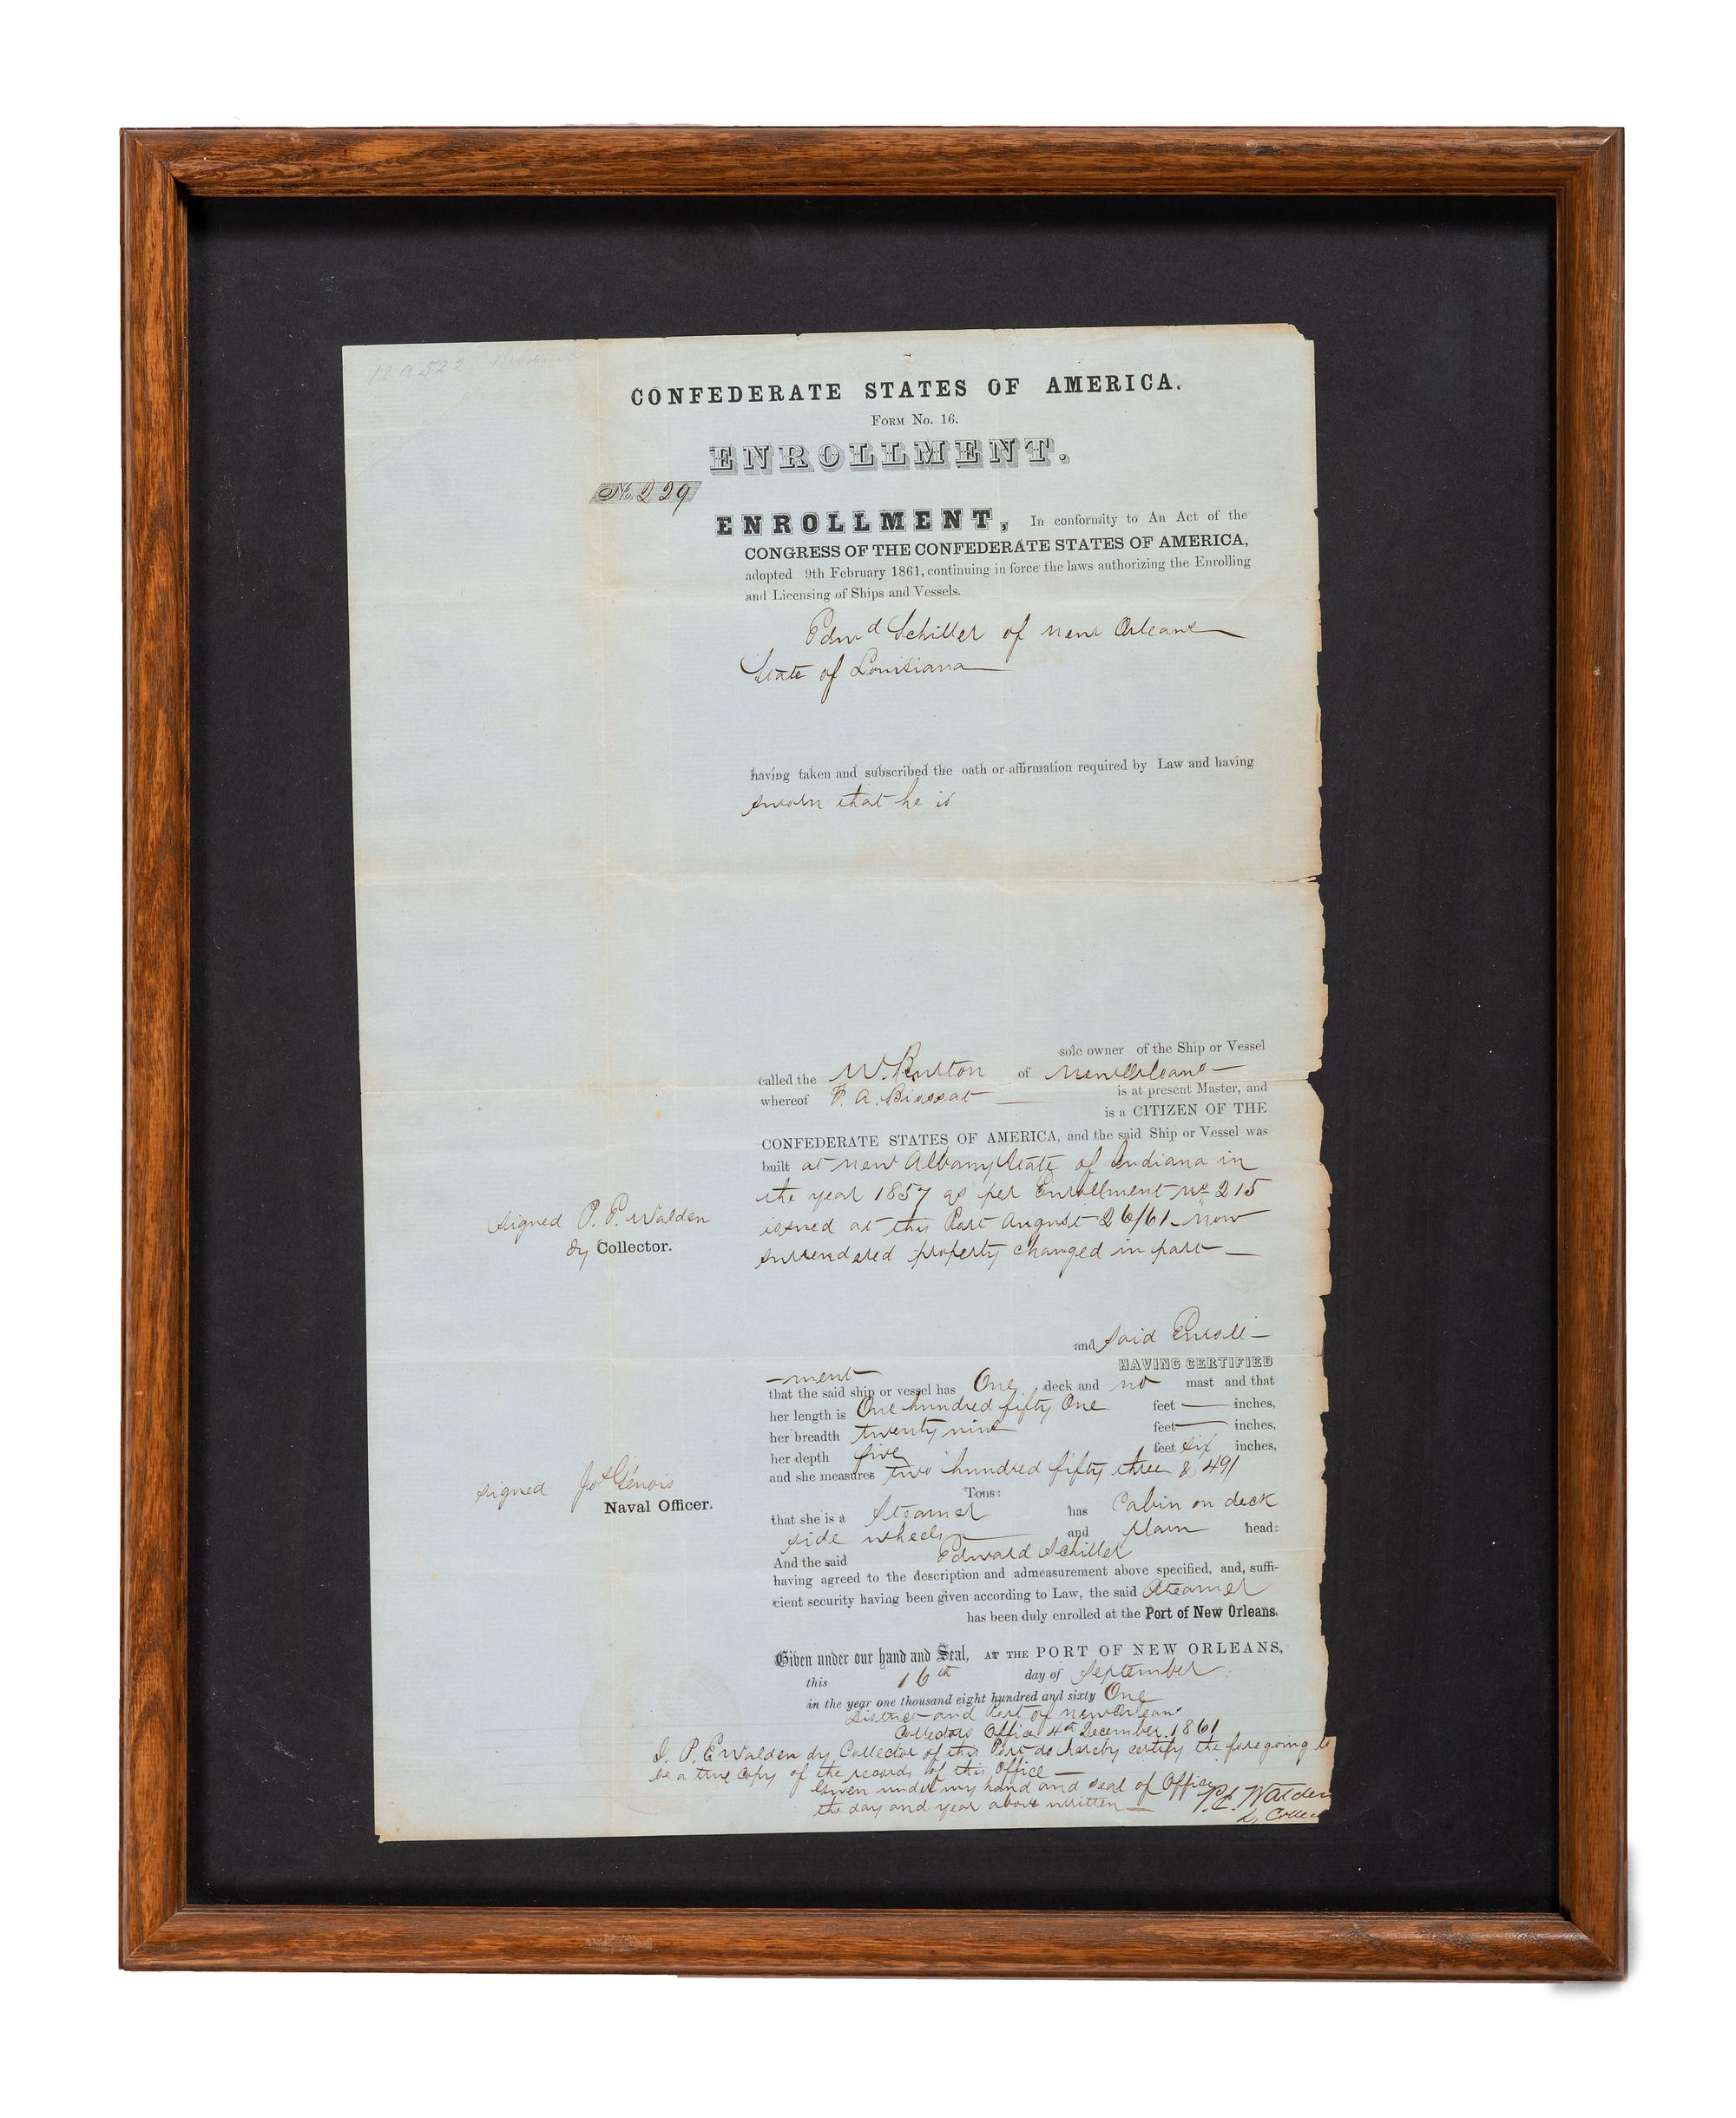 12 9522
CONFEDERATE STATES OF AMERICA.
FORM No. 16.
ENROLLMENT.
No. 229
ENROLLMENT, In conformity to An Act of the
CONGRESS OF THE CONFEDERATE STATES OF AMERICA,
adopted 9th February 1861, continuing in force the laws authorizing the Enrolling
and Licensing of Ships and Vessels.
Edwd Schiller of New Orleans
State of Louisiana
having taken and subscribed the oath or affirmation required by Law and having
sworn that he is
sole owner of the Ship or Vessel
called the W. Burton of New Orleans
whereof F. A. Biossat is at present Master, and
is a CITIZEN OF THE
CONFEDERATE STATES OF AMERICA, and the said Ship or Vessel was
built at New Albany State of Indiana in
the year 1857 as per Enrollment No 215
issued at this Port August 26/61 now
surrendered property changed in part
signed P. E. Walden
Dy Collector.
and said Enroll-
HAVING CERTIFIED
-ment
that the said ship or vessel has One deck and no mast and that
her length is One hundred fifty One feet — inches,
her breadth twenty nine feet — inches,
her depth five feet six inches,
and she measures two hundred fifty three & 49/
Tons:
signed Jos Génois
Naval Officer.
that she is a Steamer has Cabin on deck
side wheels and Plain head:
And the said Edward Schiller
having agreed to the description and admeasurement above specified, and, suffi-
cient security having been given according to Law, the said Steamer
has been duly enrolled at the Port of New Orleans.
Given under our hand and Seal, AT THE PORT OF NEW ORLEANS,
this 16th day of September
in the year one thousand eight hundred and sixty One
District and Port of New Orleans
Collectors Office 4th December 1861
I. P. E Walden dy Collector of this Port do hereby certify the foregoing to
be a true Copy of the records of this Office
Given under my hand and seal of Office
the day and year above written
P. E. Walden
Dy Collec